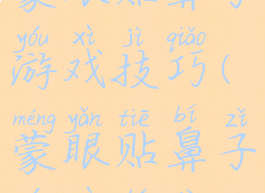 yóu xì jì qiǎo
游戏技巧(
méng yǎn tiē bí zǐ
蒙眼贴鼻子